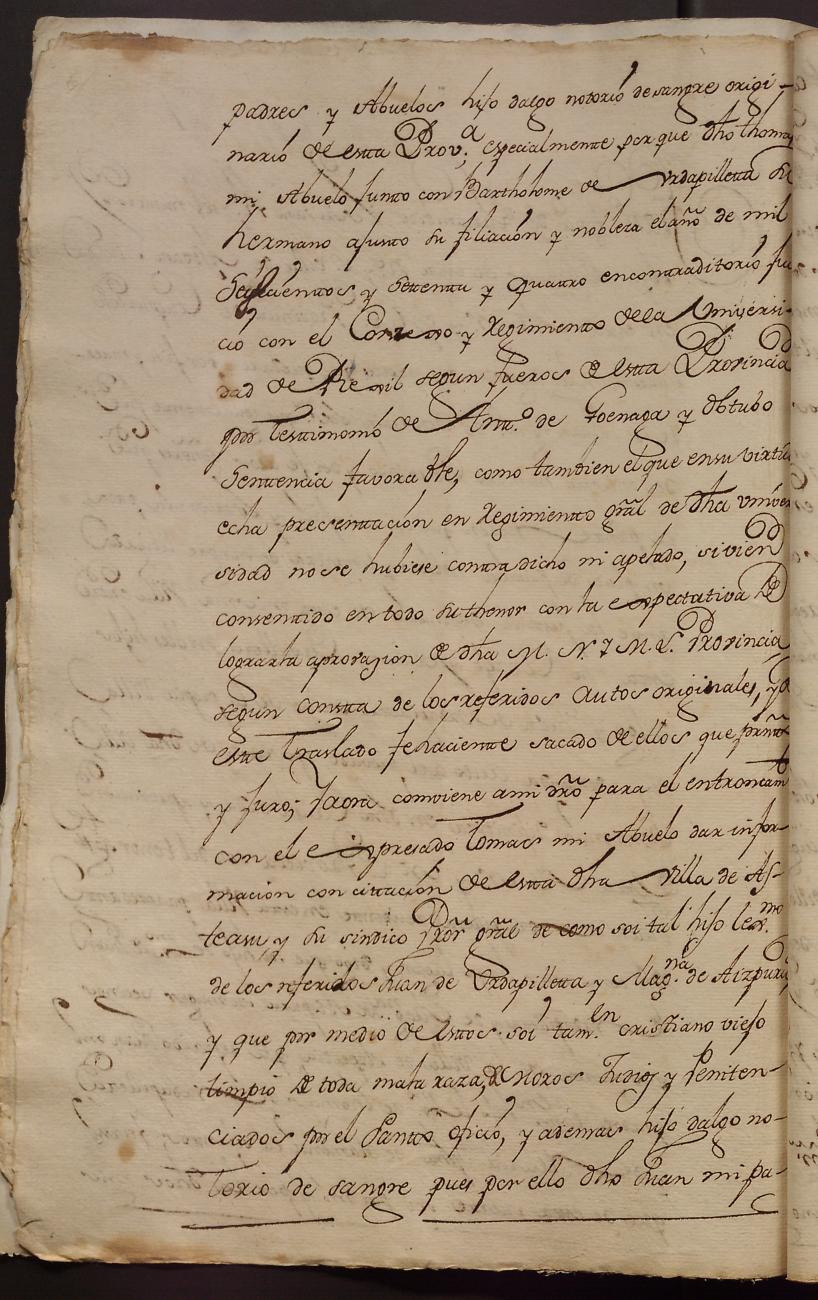 padres y Abuelos hijo dalgo notorio desangre origi-
nario de estta Prov.ª especialmente por que dho thomas
mi Abuelo junto con Bartholome de Urdapilletta su
hermano ajunto su filiacion y nobleza el año de mil
y settenta y quatro encontraditorio jui
cio con el Conzejo y Regimiento dela Universi-
dad de Rexil segun fueros de estta Provincia
por Testimonio de Antt.º de Goenaga y obtubo
Sentencia favorable, como tambien el que ensu virtud
echa presentacion en Regimientto grãl de dha univer
sidad nose hubiese contradicho ni apelado, si vien
consentido entodo suthenor con la expectativa de
lograrla aprovazion de dha M. N. y M. L. Provincia
segun constta de los referidos autos originales, y de
este Traslado fehaciente sacado de ellos que
y juro; y aora comviene ami dr̃o para el entroncam.to
con el expresado Tomas mi Abuelo dar infor-
macion con cittacion de estta dha Villa de As-
teasu, y su sindico Pror̃ grãl de como soi tal hijo lex.mo
de los referidos Juan de Urdapilletta y Mag.na de Aizpuru
y que por medio de esttos soi tam.en cristiano viejo
limpio de toda mala raza, de Moros Judios y Peniten-
ciados por el Santto oficio, y ademas hijo dalgo no-
torio de sangre pues por ello dho Juan mi pa-